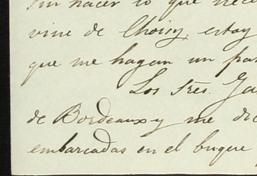 sin hacer lo que nece
vine de Choisy, estoy
que me hagan un pa
Los Sres. Ga
de Bordeaux y me di
embarcadas en el buque